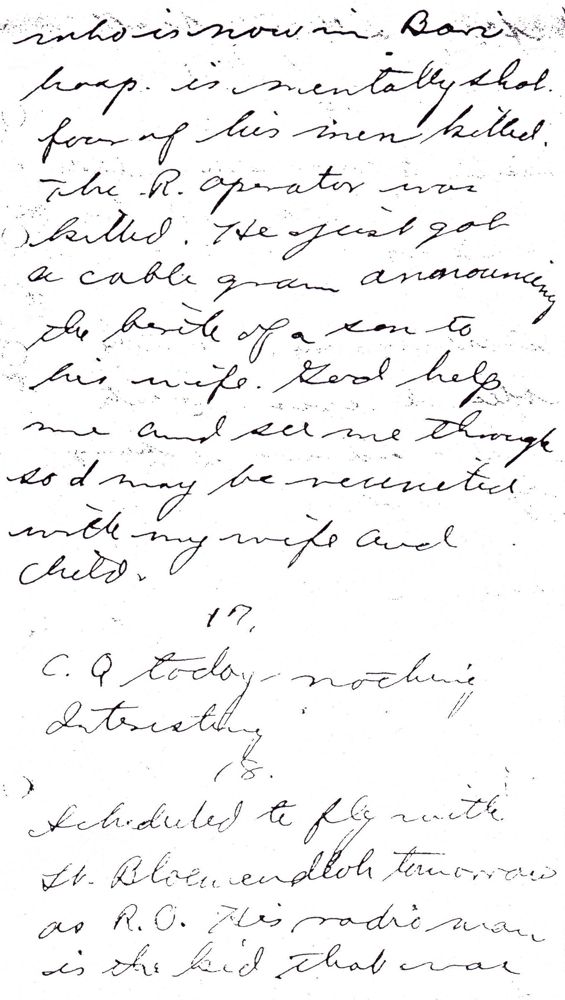 who is now in Bari
hosp. is mentally shot.
four of his men killed.
The R. operator was
killed. He just got
a cable gram announcing
the birth of a son to
his wife. God help
me and see me through
so I may be reunited
with my wife and
child.
17.
C. Q today - nothing
Interesting
18.
Scheduled to fly with
Lt. tomorrow
as R.O. His radio man
is the kid that was